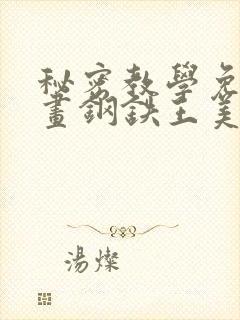 秘密教學免
畫鋼鉄王美
湯燦